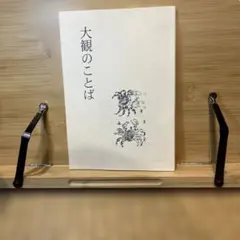 大観のことば